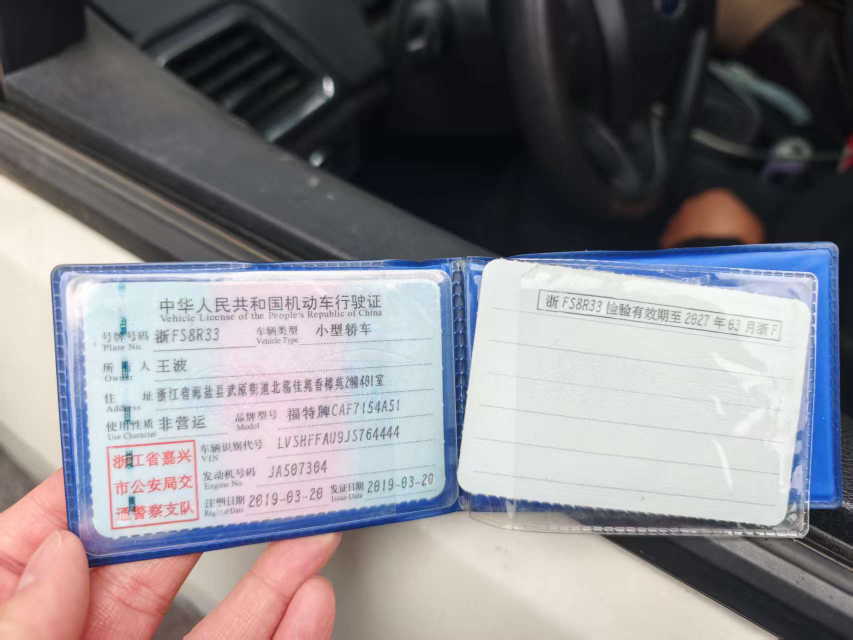 中华人民共和国机动车行驶证
Vehicle License of the People's Republic of China
号牌号码 浙FS8R33 车辆类型 小型轿车
Plate No. Vehicle Type
所有人 王波
Owner
住址 浙江省海盐县武原街道北海佳苑香樟苑2幢401室
Address
使用性质 非营运 品牌型号 福特牌CAF7154A51
Use Character Model
车辆识别代号 LVSHFFAU9JS764444
VIN
发动机号码 JA507304
Engine No.
注册日期 2019-03-20 发证日期 2019-03-20
Register Date Issue Date
浙江省嘉兴
市公安局交
通警察支队
浙FS8R33 检验有效期至2027年03月浙F